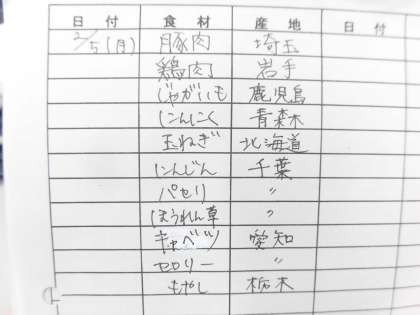 日付 食材 産地 日付
2/5(月) 豚肉 埼玉
鶏肉 岩手
じゃがいも 鹿児島
にんにく 青森
玉ねぎ 北海道
にんじん 千葉
パセリ 〃
ほうれん草 〃
キャベツ 愛知
セロリー 〃
もやし 栃木